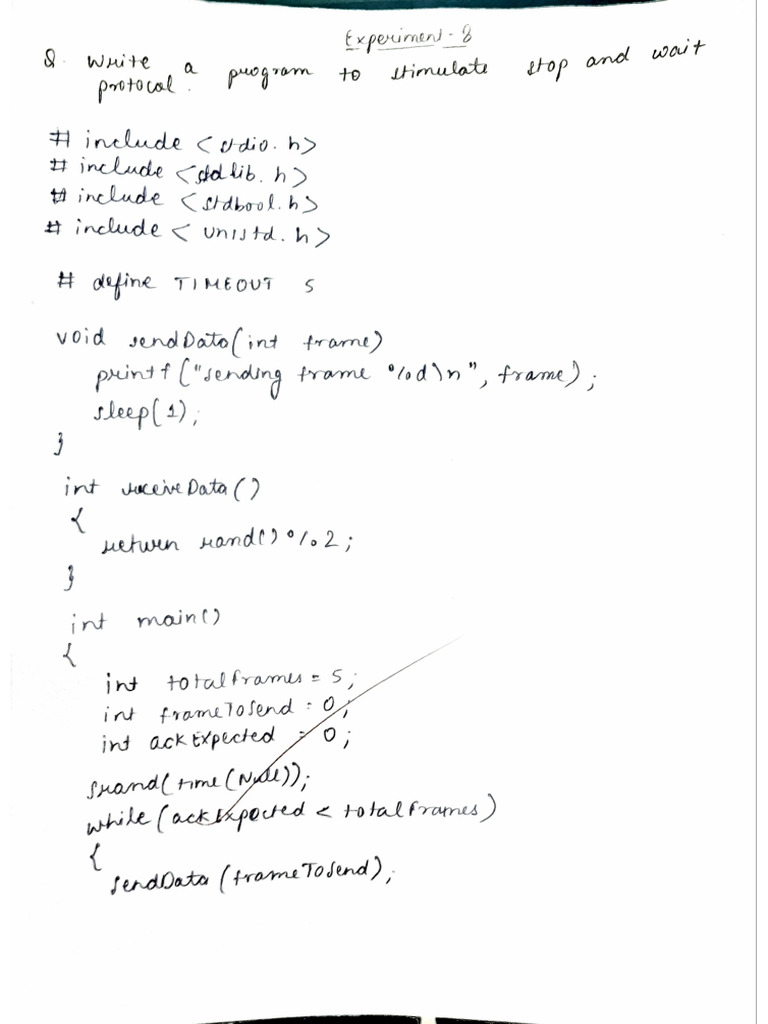 Experiment - 8
Q. Write a program to stimulate stop and wait
protocol.
# include <stdio.h>
# include <stdlib.h>
# include <stdbool.h>
# include <unistd.h>
# define TIMEOUT 5
void sendData(int frame)
printf("sending frame %d\n", frame);
sleep(1);
}
int receiveData()
{
return rand()%2;
}
int main()
{
int totalframes = 5;
int frameToSend = 0;
int ackExpected = 0;
srand(time(Null));
while(ackExpected < totalframes)
{
sendData(frameToSend);